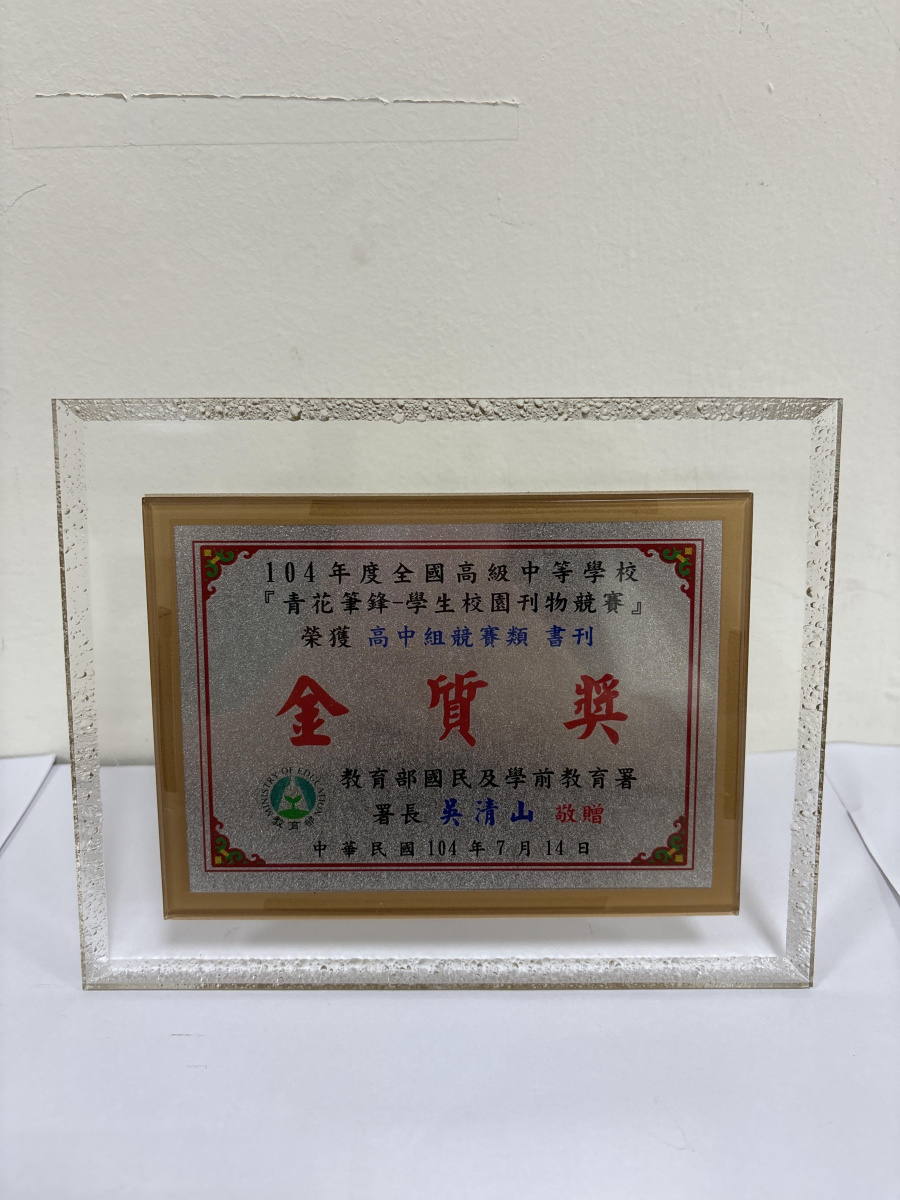 104年度全國高級中等學校
『青花筆鋒-學生校園刊物競賽』
榮獲 高中組競賽類 書刊
金質獎
MINISTRY OF EDUCATION
教育部
教育部國民及學前教育署
署長 吳清山 敬贈
中華民國104年7月14日